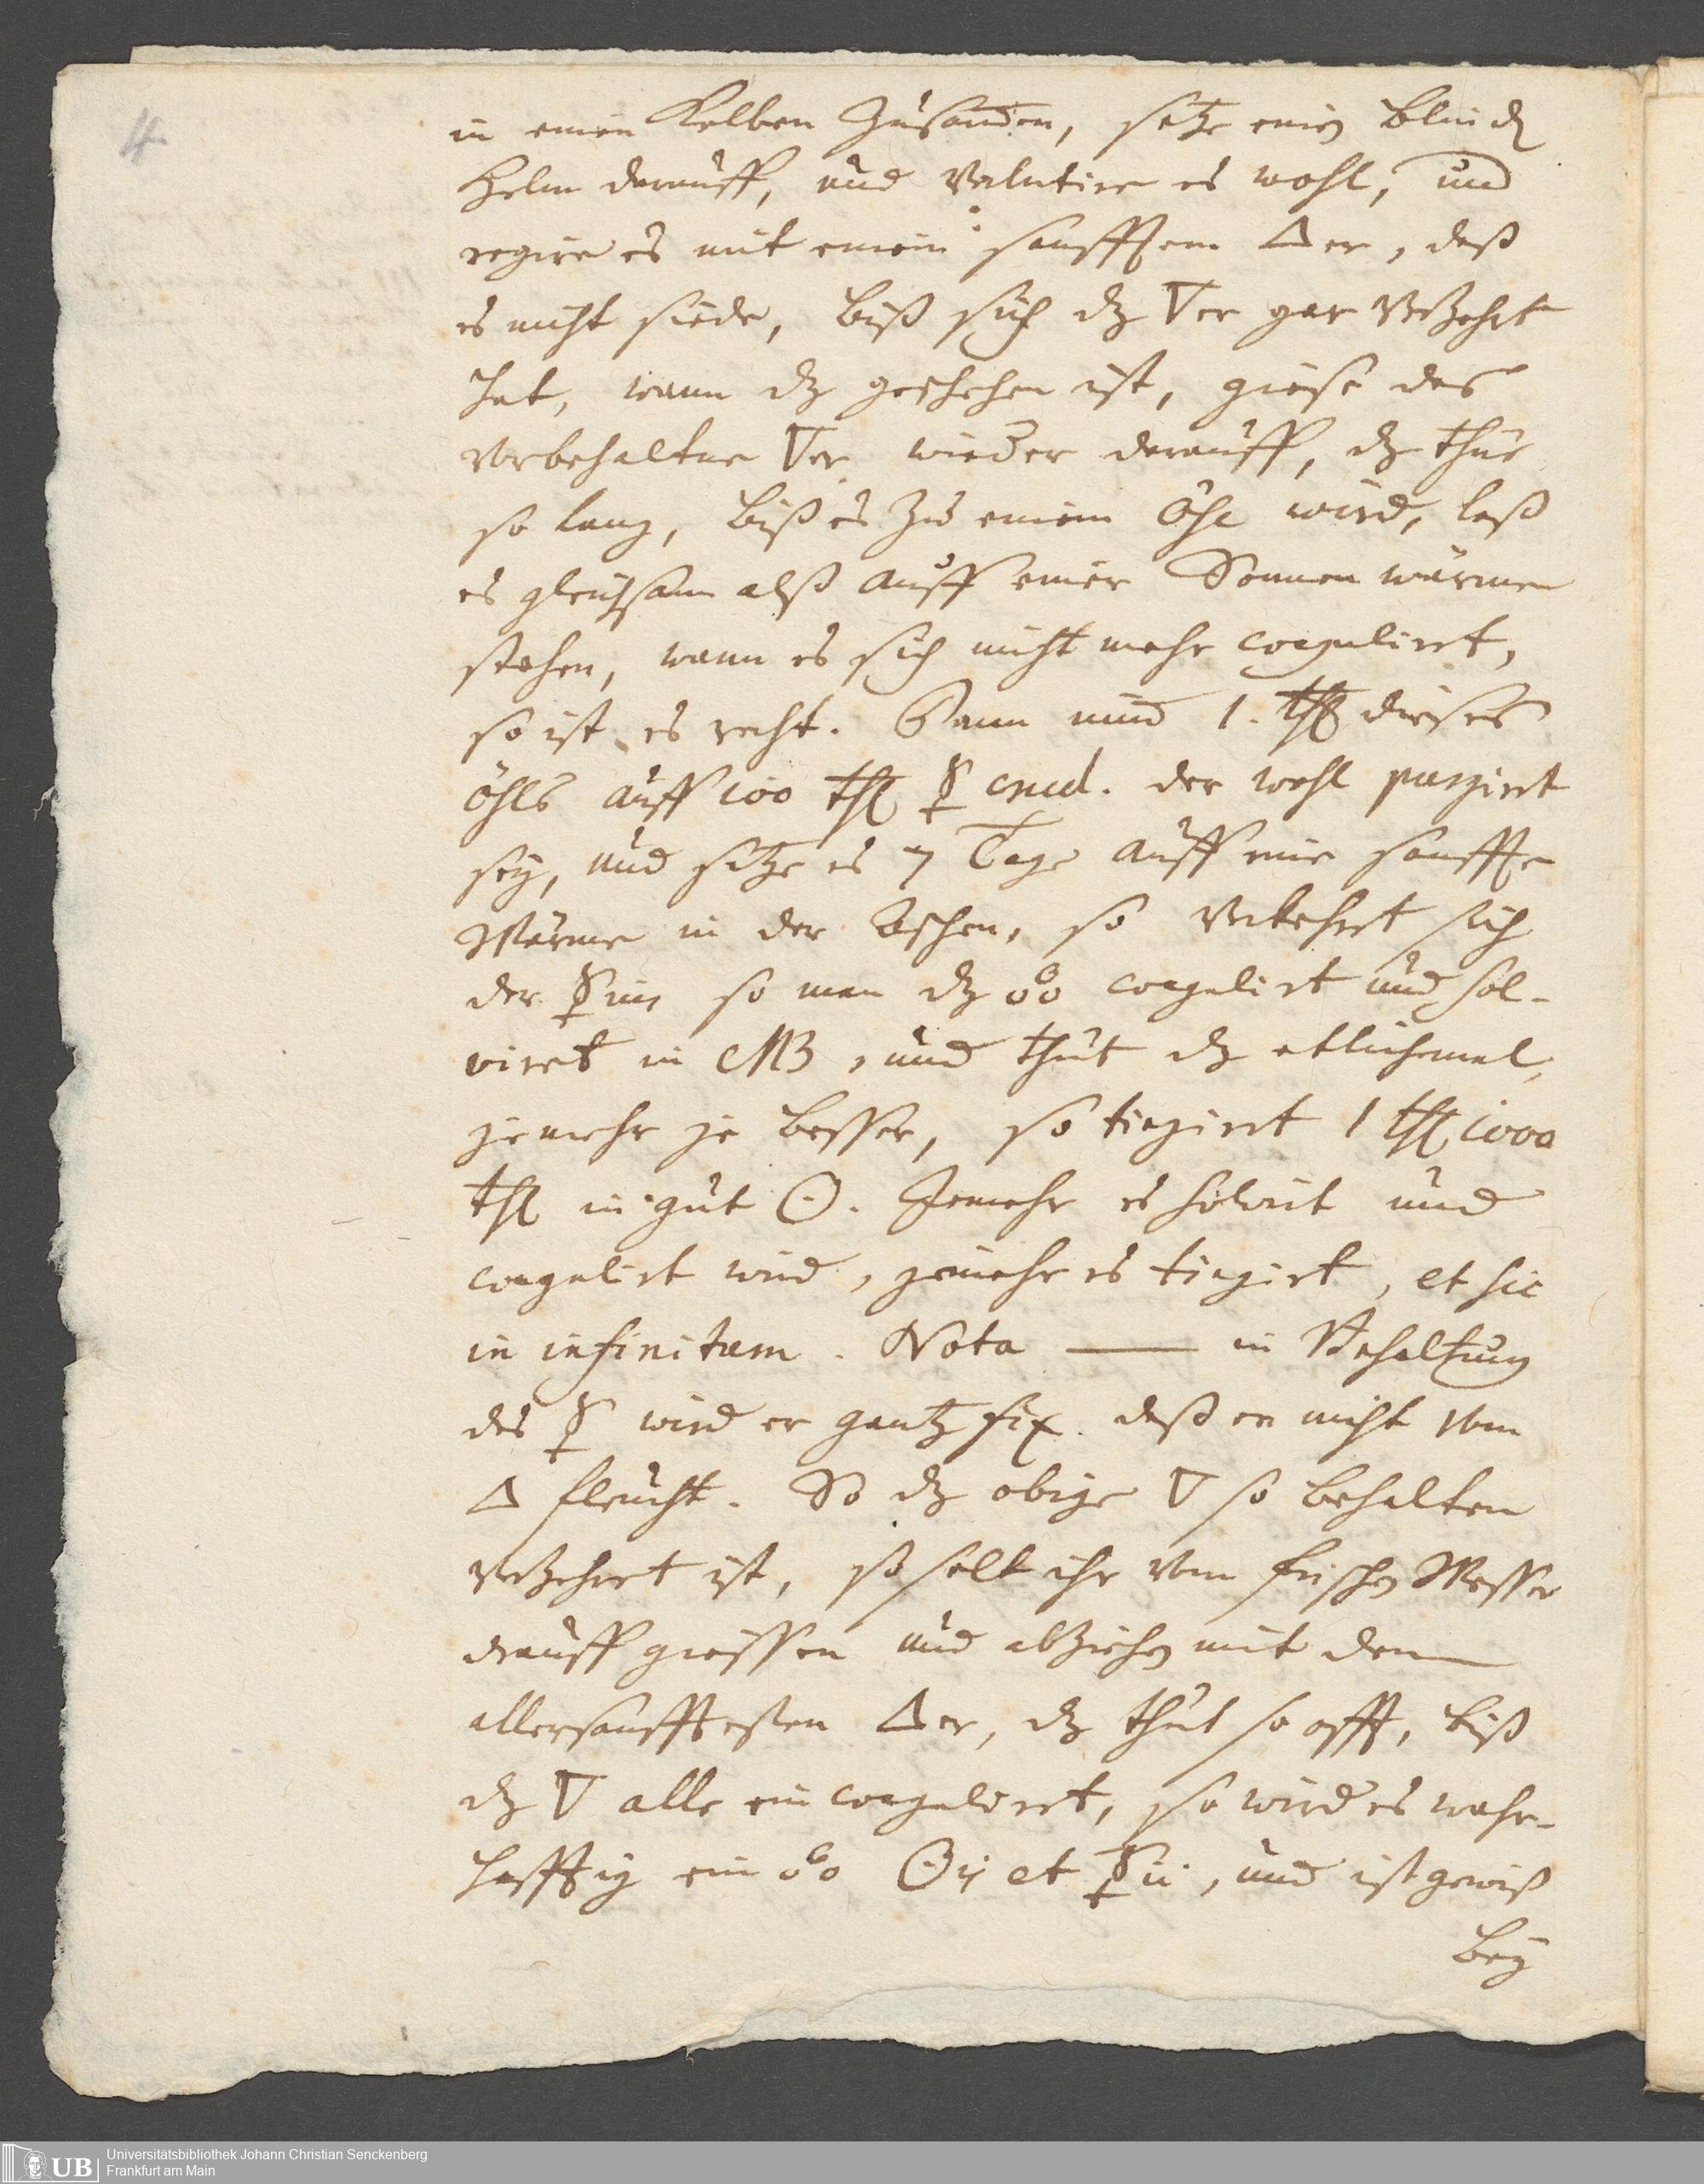 4
in einen Kolben Zusam̄en, setze einen Blinden
Helm darauff, und Verlutire es wohl, und
regire es mit einem sanfften 🜂er, daß
es nicht siede, biß sich dz 🜄er gar Verzehrt
hat, wann dz geschehen ist, giese das
vorbehaltene 🜄er wieder darauff, dz thue
so lang, biß es zu einem Öhl wird, laß
es gleichsam alß auff einer Sonnen wärmen
stehen, wann es sich nicht mehr coagulirt,
so ist es recht. Dann nim̄ 1. thl dieses
öhls auff 100 thl ☿ crud. der wohl purgirt
sey, und setze es 7 Tage auff eine sanffte
Wärme in der Aschen, so Verkehrt sich
der ☿ius so man dz o͛o coagulirt und sol-
virt in MB, und thut dz etlichemal,
jemehr je besser, so tingirt 1 thl 1000
thl in gut ☉. Jemehr es solvirt und
coagulirt wird, jemehr es tingirt, et sic
in infinitum. Nota —— in Behaltung
des ☿ wird er gantz fix. daß er nicht Vom
🜂 fleucht. So dz obige 🜄 so behalten
Verzehret ist, so solt ihr Vom frischen Wasser
drauff giessen und abziehen mit dem
allersanfftesten 🜂er, dz thut so offt, biß
dz 🜄 alle ein coagulirt, so wird es wahr-
hafftig ein o͛o ☉ij et ☿ii, und ist gewiß
bey
UB Universitätsbibliothek Johann Christian Senckenberg
Frankfurt am Main